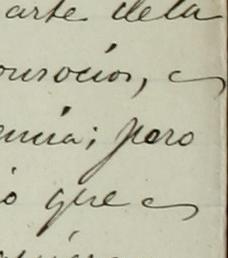 arte dela
onsocios,
encia; pero
ó que